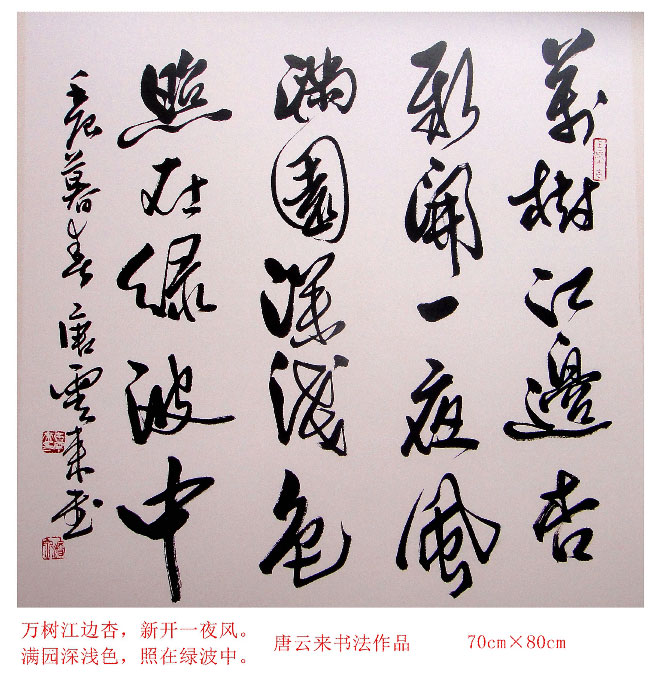 萬樹江邊杏
新開一夜風
滿園深淺色
照在綠波中
壬辰暮春唐雲來書
万树江边杏，新开一夜风。
满园深浅色，照在绿波中。
唐云来书法作品
70cm×80cm